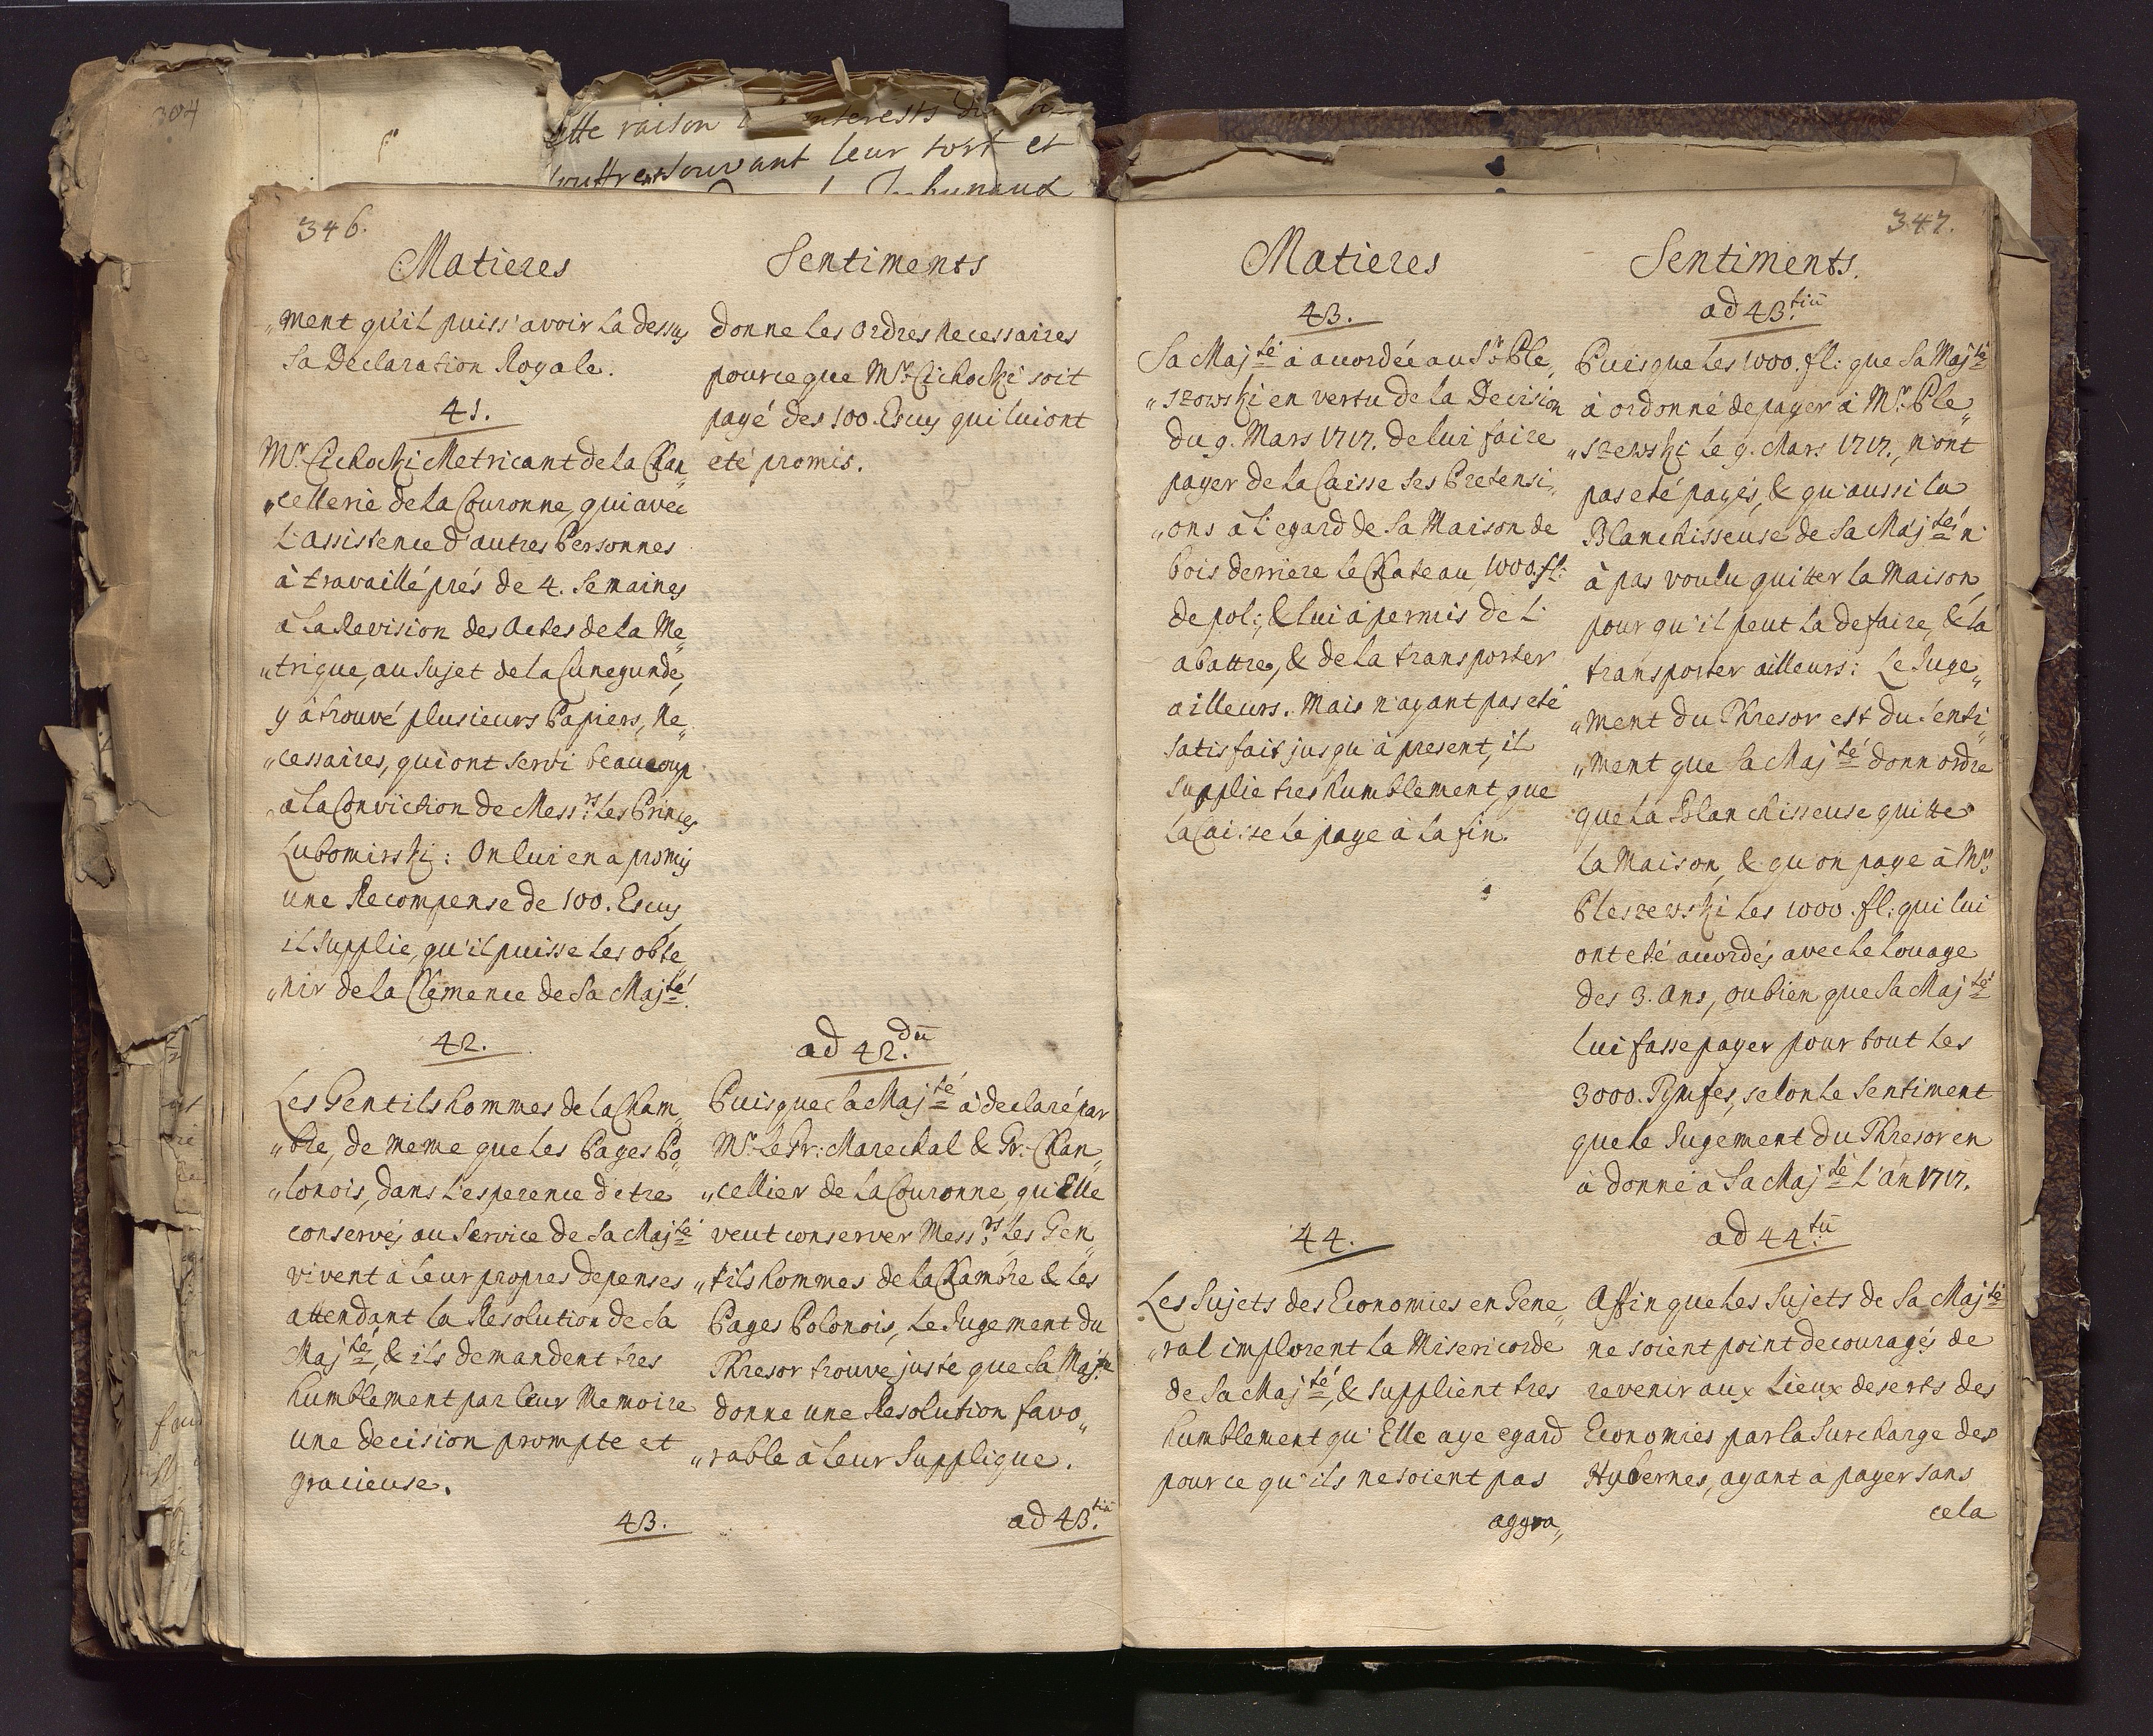 304
ette raison
interests
souvant leur tort et
346.
Matieres
„ment qu'il puiss' avoir la dessus
Sa Declaration Royale.
41.
Mr. Cichocki Metricant de la Chan„
„cellerie de la Couronne, qui avec
L'assistence d'autres Personnes
à travaillé prés de 4. Semaines
à la Revision des Actes de la Me„
„trique, au Sujet de la Cunegunde,
y à trouvé plusieurs Papiers, Ne„
„cessaires, qui ont servi beaucoup
à la Conviction de Messrs. les Princes
Lubomirski: On lui en a promis
une Recompense de 100. Escus
il Supplie, qu'il puisse les obte„
„nir de la Clemence de Sa Majté.
42.
Les Gentilshommes de la Cham„
„bre, de meme que les Pages Po„
„lonois, dans l'esperence d'etre
conservés au Service de Sa Majté
vivent à leur propres depenses
attendant la Resolution de Sa
Majté, & ils demandent tres
humblement par leur Memoire
une decision prompte et
gracieuse.
43.
Sentiments
donne les ordres necessaires
pource que Mr. Cichocki soit
payé des 100. Escus qui lui ont
eté promis.
ad 42.dū
Puisque Sa Majté à declaré par
Mr. le Gr: Marechal & Gr: Chan„
„cellier de la Couronne, qu'Elle
veut conserver Messrs. les Gen„
„tilshommes de la Chambre & les
Pages Polonois, le Jugement du
Thresor trouve juste que Sa Majté
donne une Resolution favo„
„rable à leur Supplique.
ad 43.tiū
347.
Matieres
43.
Sa Majté à acordée au Sr. Ple„
„szowski en vertu de la Decision
du 9. Mars 1717. de lui faire
payer de la Caisse ses Pretensi„
„ons à l'egard de Sa Maison de
bois derriere le Chateau, 1000. fl:
de pol:, & lui à permis de l'
abattre, & de la transporter
ailleurs. Mais n'ayant pas eté
satisfait jusqu'à present, il
Supplie tres humblement, que
la Caisse le paye à la fin.
44.
Les Sujets des Economies en Gene„
„ral implorent la Misericorde
de Sa Majté, & supplient tres
humblement qu'Elle aye egard
pour ce qu'ils ne soient pas
aggra„
Sentiments.
ad 43.tiū
Puisque les 1000. fl: que Sa Majté
à ordonné de payer à Mr. Ple„
„szewski le 9. Mars 1717., n'ont
pas eté payés, & qu'aussi la
Blanchisseuse de Sa Majté n'
à pas voulu quitter la Maison,
pour qu'il peut la defaire, & la
transporter ailleurs: Le Juge„
„ment du Thresor est du Senti„
„ment que Sa Majté donn ordre
que la Blanchisseuse quitte
la Maison, & qu'on paye à Mr.
Pleszewski les 1000. fl: qui lui
ont eté acordés avec le louage
des 3. Ans, ou bien que Sa Majté
lui fasse payer pour tout les
3000. Tymfes, selon le Sentiment
que le Jugement du Thresor en
à donné à Sa Majté L'an 1717.
ad 44.tū
Affin que les Sujets de Sa Majté
ne soient point decouragés de
revenir aux Lieux deserts des
Economies par la Surcharge des
Hybernes, ayant à payer sans
cela